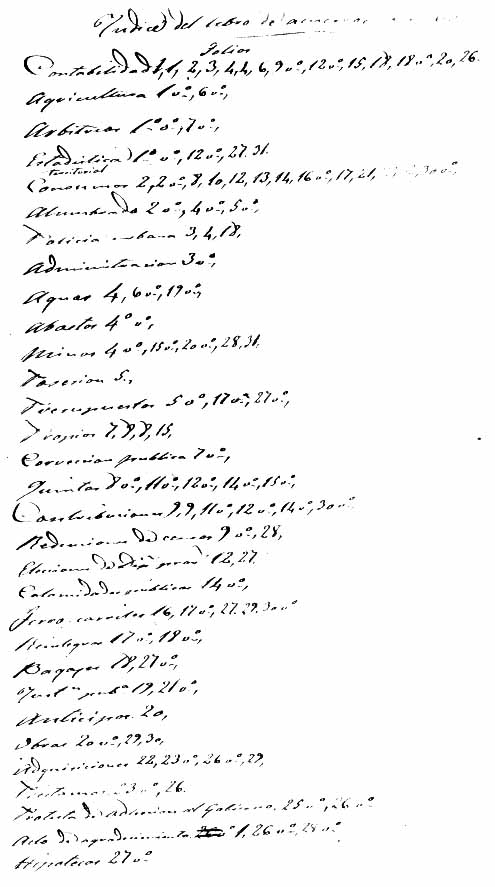 Yndice del libro de
Folios
Contabilidad 1, 1, 2, 3, 4, 4, 6, 9 vº, 12 vº, 15, 18, 18 vº, 20, 26.
Agricultura 1 vº, 6 vº,
Arbitrios 1º vº, 7 vº,
Estadistica 1º vº, 12 vº, 27. 31.
territorial
Consumos 2, 2 vº, 8, 10, 12, 13, 14, 16 vº, 17, 21, 30 vº,
Alumbrado 2 vº, 4 vº, 5 vº,
Policia urbana 3, 4, 18,
Administracion 3 vº,
Aguas 4, 6 vº, 19 vº,
Abastos 4º vº,
Minas 4 vº, 15 vº, 20 vº, 28, 31.
Posesion 5.,
Presupuestos 5 vº, 17 vº, 27 vº,
Propios 7, 8, 8, 15,
Correccion publica 7 vº,
Quintas 8 vº, 11 vº, 12 vº, 14 vº, 15 vº,
Contribuciones 9, 9, 11 vº, 12 vº, 14 vº, 30 vº,
Redenciones de censos 9 vº, 28,
Elecciones de dipˢ provˢ 12, 27.
Calamidades publicas 14 vº,
Ferro-carriles 16, 17 vº, 27. 29. 30 vº
Reintegros 17 vº, 18 vº,
Bagages 18, 27 vº,
Ynstⁿ pubª 19, 21 vº,
Anticipos 20,
Obras 20 vº, 29, 30,
Adquisiciones 22, 23 vº, 26 vº, 29,
Prestamos 23 vº, 26.
Protesta de adhesion al Gobierno 25 vº, 26 vº
Acto de agradecimiento 1, 26 vº, 28 vº
Hipotecas 27 vº